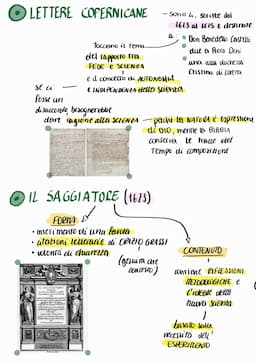 LETTERE COPERNICANE
- sono 4, scritte dal
1613 al 1615 e destinate
a:
• Don Benedetto Castelli
• due a Piero Dini
• una alla duchessa
Cristina di Lorena
Toccano il tema
del rapporto tra
FEDE e SCIENZA
e il concetto di AUTONOMIA
e INDIPENDENZA della SCIENZA
se ci
fosse un
disaccordo, bisognerebbe
dare ragione alla SCIENZA
perché la NATURA è espressione
di DIO, mentre la BIBBIA
conserva le tracce del
tempo di composizione
IL SAGGIATORE (1623)
FORMA
• inserimento di una favola
• citazioni letterarie di ORAZIO GRASSI
• volontà di chiarezza
(gesuita che
CONTENUTO
contiene RIFLESSIONI
METODOLOGICHE e
l'ideale della
nuova scienza
basato sulla
necessità dell'
ESPERIMENTO